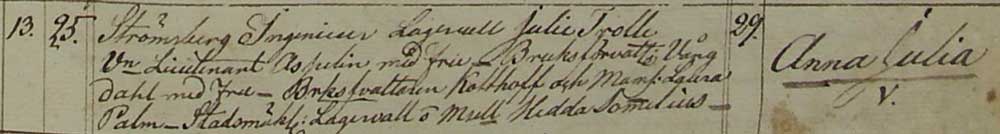 13. 25. Strömsberg Ingenieur Lagerwall Julie Trolle 29. Anna Julia
Un Lieutenant Asplin med fru – Bruksförvalt: Wång
dahl med fru – Brksfvaltaren Kolthoff och Mams: Laura v.
Palm – Stadsmäkl: Lagerwall o Mull Hedda Somelius –